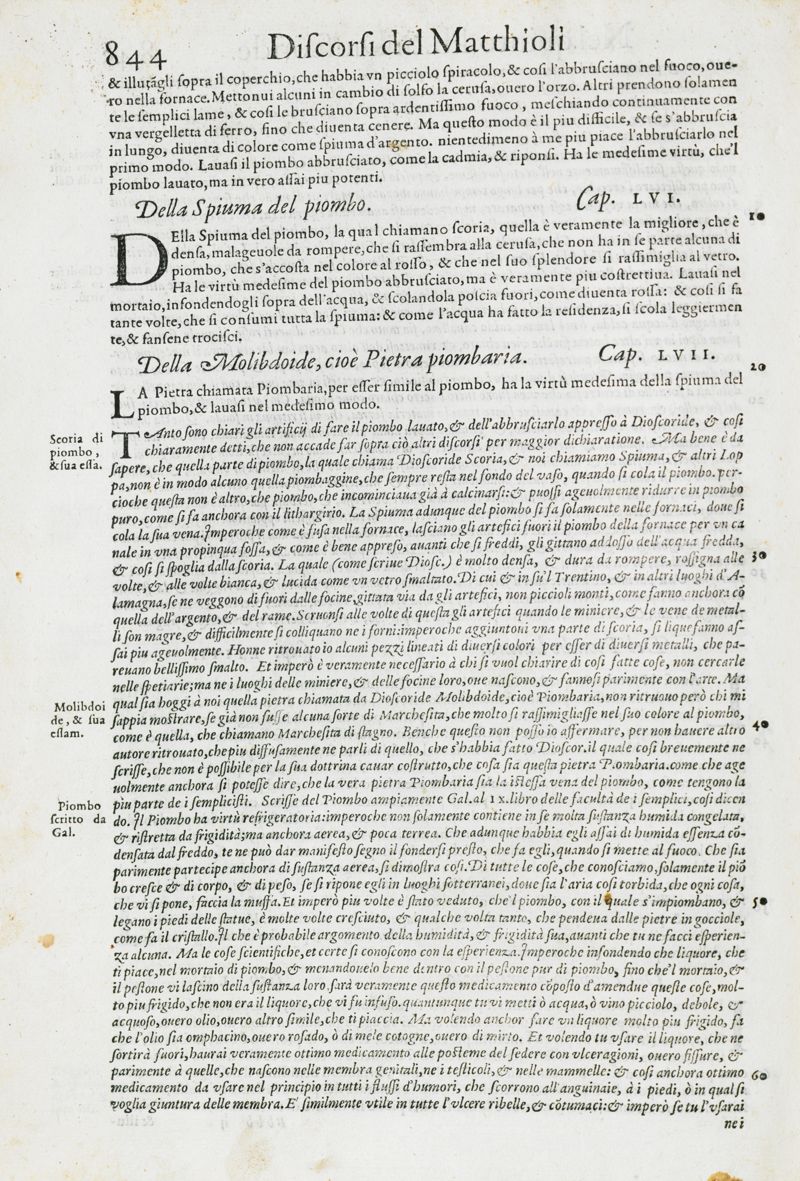 844
Discorsi del Matthioli
& illutãgli sopra il coperchio, che habbia vn picciolo spiracolo, & cosi l'abbrusciano nel fuoco, oue-
ro nella fornace. Mettonui alcuni in cambio di solfo la cerusa, ouero l'orzo. Altri prendono solamen
te le semplici lame, & cosi le brusciano sopra ardentissimo fuoco, meschiando continuamente con
vna vergelletta di ferro, fino che diuenta cenere. Ma questo modo è il piu difficile, & se s'abbruscia
in lungo, diuenta di colore come spiuma d'argento. nientedimeno à me piu piace l'abbrusciarlo nel
primo modo. Lauasi il piombo abbrusciato, come la cadmia, & riponsi. Ha le medesime virtù, che'l
piombo lauato, ma in vero assai piu potenti.
Della Spiuma del piombo. Cap. LVI.
10
DElla Spiuma del piombo, la qual chiamano scoria, quella è veramente la migliore, che è
densa, malageuole da rompere, che si rassembra alla cerusa, che non ha in se parte alcuna di
piombo, che s'accosta nel colore al rosso, & che nel suo splendore si rassimiglia al vetro.
Ha le virtù medesime del piombo abbrusciato, ma è veramente piu costrettiua. Lauasi nel
mortaio, infondendogli sopra dell'acqua, & scolandola poscia fuori, come diuenta rossa: & cosi si fa
tante volte, che si consumi tutta la spiuma: & come l'acqua ha fatto la residenza, si scola leggiermen
te, & fansene trocisci.
Della Molibdoide, cioè Pietra piombaria. Cap. LVII.
20
LA Pietra chiamata Piombaria, per esser simile al piombo, ha la virtù medesima della spiuma del
piombo, & lauasi nel medesimo modo.
Scoria di
piombo,
& sua essa.
TAnto sono chiari gli artificij di fare il piombo lauato, & dell'abbrusciarlo appresso à Dioscoride, & cosi
chiaramente detti, che non accade far sopra ciò altri discorsi per maggior dichiaratione. Ma bene è da
sapere, che quella parte di piombo, la quale chiama Dioscoride Scoria, & noi chiamiamo Spiuma, & altri Lop
pa, non è in modo alcuno quella piombaggine, che sempre resta nel fondo del vaso, quando si cola il piombo. per-
cioche questa non è altro, che piombo, che incominciaua già à calcinarsi: & puossi ageuolmente ridurre in piombo
puro, come si fa anchora con il lithargirio. La Spiuma adunque del piombo si fa solamente nelle fornaci, doue si
cola la sua vena. Imperoche come è fusa nella fornace, lasciano gli artefici fuori il piombo della fornace per vn ca
nale in vna propinqua fossa, & come è bene appreso, auanti che si freddi, gli gittano addosso dell'acqua fredda,
& cosi si spoglia dalla scoria. La quale (come scriue Diosc.) è molto densa, & dura da rompere, rossigna alle
30
volte, & alle volte bianca, & lucida come vn vetro smaltato. Di cui & in su'l Trentino, & in altri luoghi d'A-
lamagna, se ne veggono di fuori dalle focine, gittata via da gli artefici, non piccioli monti, come fanno anchora cõ
quella dell'argento, & del rame. Seruonsi alle volte di questa gli artefici quando le miniere, & le vene de metal-
li son magre, & difficilmente si colliquano ne i forni: imperoche aggiuntoui vna parte di scoria, si liquefanno as-
sai piu ageuolmente. Honne ritrouato io alcuni pezzi lineati di diuersi colori per esser di diuersi metalli, che pa-
reuano bellissimo smalto. Et imperò è veramente necessario à chi si vuol chiarire di cosi fatte cose, non cercarle
nelle spetiarie; ma ne i luoghi delle miniere, & delle focine loro, oue nascono, & fannosi parimente con l'arte. Ma
Molibdoi
de, & sua
essam.
qual sia hoggi à noi quella pietra chiamata da Dioscoride Molibdoide, cioè Piombaria, non ritruouo però chi mi
sappia mostrare, se già non fusse alcuna sorte di Marchesita, che molto si rassimigliasse nel suo colore al piombo,
come è quella, che chiamano Marchesita di stagno. Benche questo non posso io affermare, per non hauere altro
40
autore ritrouato, che piu diffusamente ne parli di quello, che s'habbia fatto Dioscor. il quale cosi breuemente ne
scrisse, che non è possibile per la sua dottrina cauar costrutto, che cosa sia questa pietra Piombaria. come che age
uolmente anchora si potesse dire, che la vera pietra Piombaria sia la istessa vena del piombo, come tengono la
Piombo
scritto da
Gal.
piu parte de i semplicisti. Scrisse del Piombo ampiamente Gal. al ix. libro delle facultà de i semplici, cosi dicen
do. Il Piombo ha virtù refrigeratoria: imperoche non solamente contiene in se molta sustanza humida congelata,
& ristretta da frigidità; ma anchora aerea, & poca terrea. Che adunque habbia egli assai di humida essenza cõ-
densata dal freddo, te ne può dar manifesto segno il fondersi presto, che fa egli, quando si mette al fuoco. Che sia
parimente partecipe anchora di sustanza aerea, si dimostra cosi. Di tutte le cose, che conosciamo, solamente il piõ
bo cresce & di corpo, & di peso, se si ripone egli in luoghi sotterranei, doue sia l'aria cosi torbida, che ogni cosa,
che vi si pone, faccia la muffa. Et imperò piu volte è stato veduto, che'l piombo, con il quale s'impiombano, &
50
legano i piedi delle statue, è molte volte cresciuto, & qualche volta tanto, che pendeua dalle pietre in gocciole,
come fa il cristallo. Il che è probabile argomento della humidità, & frigidità sua, auanti che tu ne facci esperien-
za alcuna. Ma le cose scientifiche, et certe si conoscono con la esperienza. Imperoche infondendo che liquore, che
ti piace, nel mortaio di piombo, & menandouelo bene dentro con il pestone pur di piombo, fino che'l mortaio, &
il pestone vi lascino della sustanza loro, sarà veramente questo medicamento cõposto d'amendue queste cose, mol-
to piu frigido, che non era il liquore, che vi fu infuso. quantunque tu vi metti ò acqua, ò vino picciolo, debole, &
acquoso, ouero olio, ouero altro simile, che ti piaccia. Ma volendo anchor fare vn liquore molto piu frigido, fa
che l'olio sia omphacino, ouero rosado, ò di mele cotogne, ouero di mirto. Et volendo tu vsare il liquore, che ne
sortirà fuori, haurai veramente ottimo medicamento alle posteme del sedere con vlceragioni, ouero fissure, &
parimente à quelle, che nascono nelle membra genitali, ne i testicoli, & nelle mammelle: & cosi anchora ottimo
60
medicamento da vsare nel principio in tutti i flussi d'humori, che scorrono all'anguinaie, à i piedi, ò in qual si
voglia giuntura delle membra. E' similmente vtile in tutte l'vlcere ribelle, & cõtumaci: & imperò se tu l'vsarai
nei